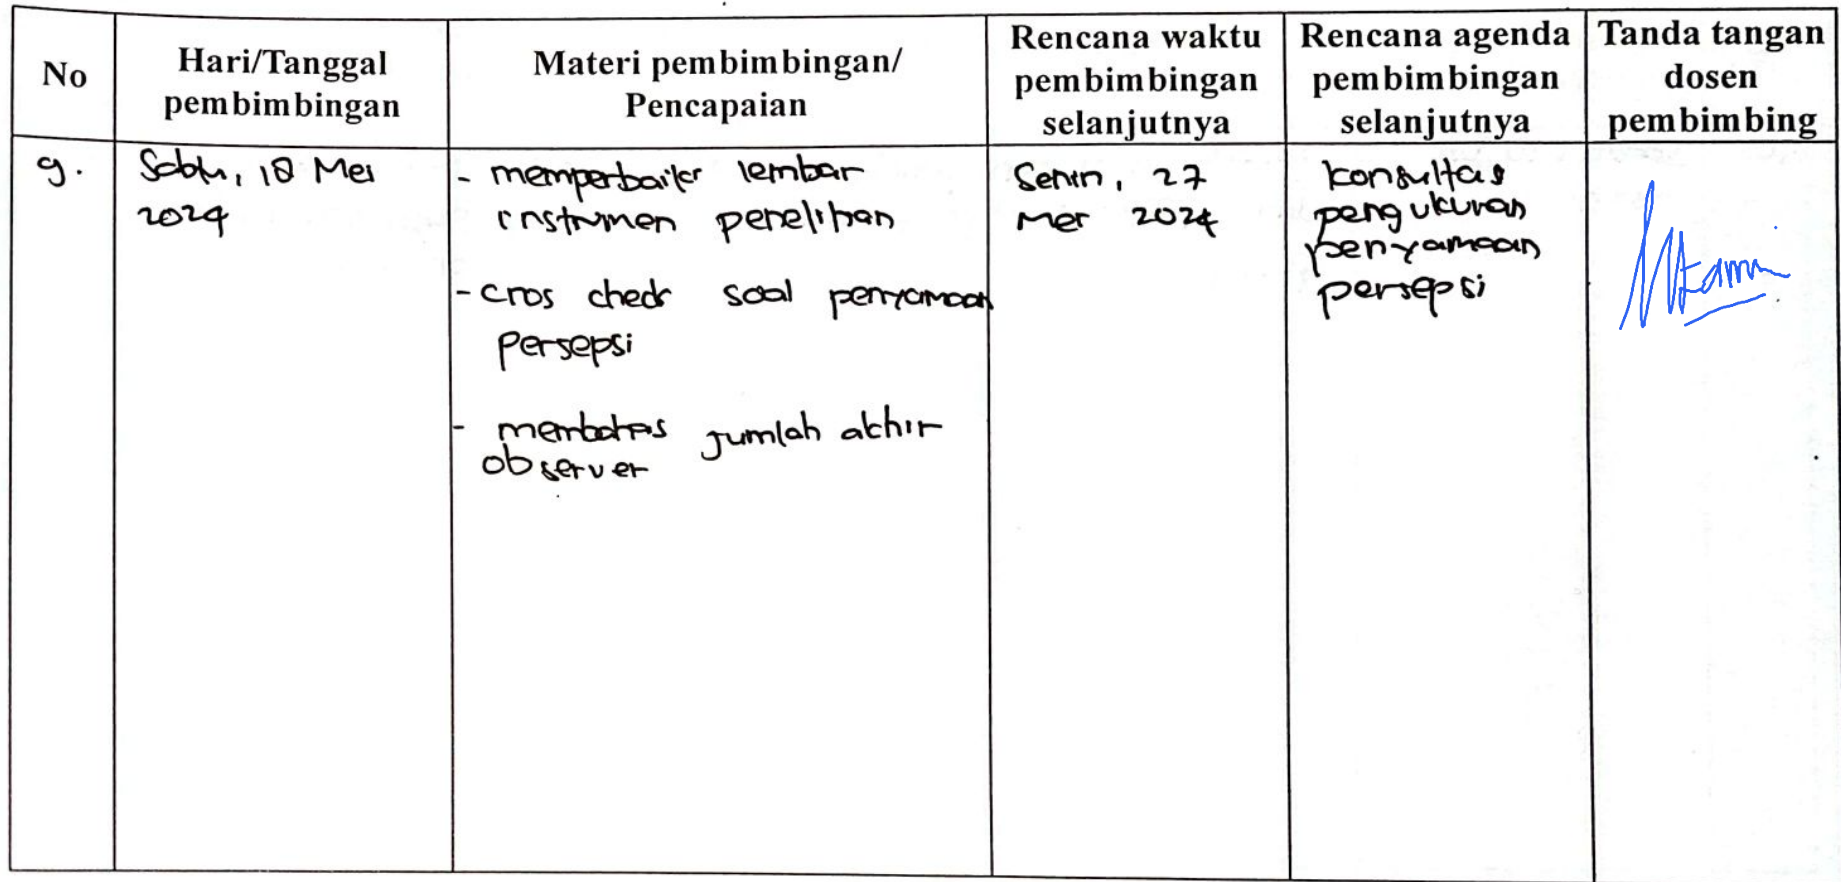 No
Hari/Tanggal
pembimbingan
Materi pembimbingan/
Pencapaian
Rencana waktu
pembimbingan
selanjutnya
Rencana agenda
pembimbingan
selanjutnya
Tanda tangan
dosen
pembimbing
9.
Sabtu, 18 Mei
2024
- memperbaiki lembar
instrumen penelitian
- cros check soal penyamaan
persepsi
- membahas jumlah akhir
observer
Senin, 27
Mei 2024
konsultasi
pengukuran
penyamaan
persepsi